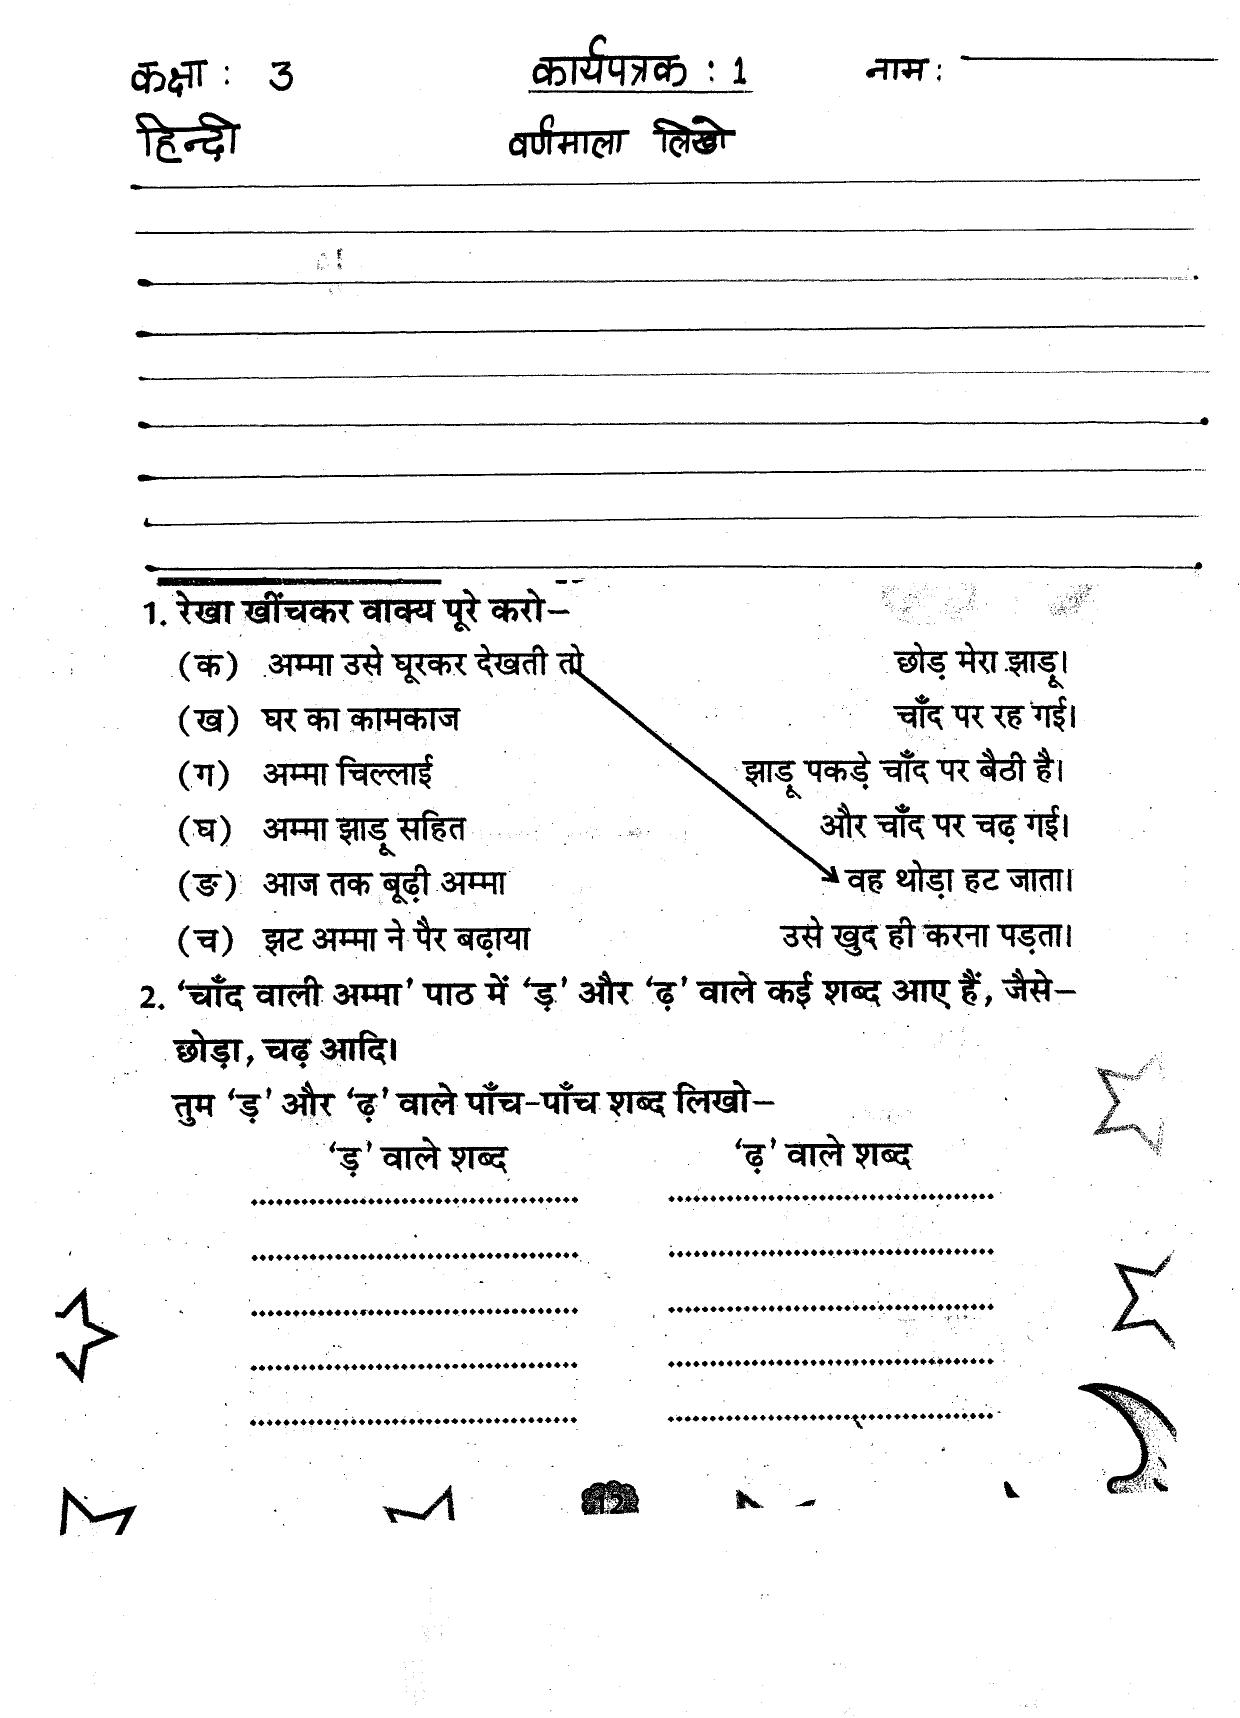 कक्षा : 3 कार्यपत्रक : 1 नाम :
हिन्दी वर्णमाला लिखो
1. रेखा खींचकर वाक्य पूरे करो–
(क) अम्मा उसे घूरकर देखती तो छोड़ मेरा झाड़ू।
(ख) घर का कामकाज चाँद पर रह गई।
(ग) अम्मा चिल्लाई झाड़ू पकड़े चाँद पर बैठी है।
(घ) अम्मा झाड़ू सहित और चाँद पर चढ़ गई।
(ङ) आज तक बूढ़ी अम्मा वह थोड़ा हट जाता।
(च) झट अम्मा ने पैर बढ़ाया उसे खुद ही करना पड़ता।
2. ‘चाँद वाली अम्मा’ पाठ में ‘ड़’ और ‘ढ़’ वाले कई शब्द आए हैं, जैसे–
छोड़ा, चढ़ आदि।
तुम ‘ड़’ और ‘ढ़’ वाले पाँच-पाँच शब्द लिखो–
‘ड़’ वाले शब्द ‘ढ़’ वाले शब्द
12